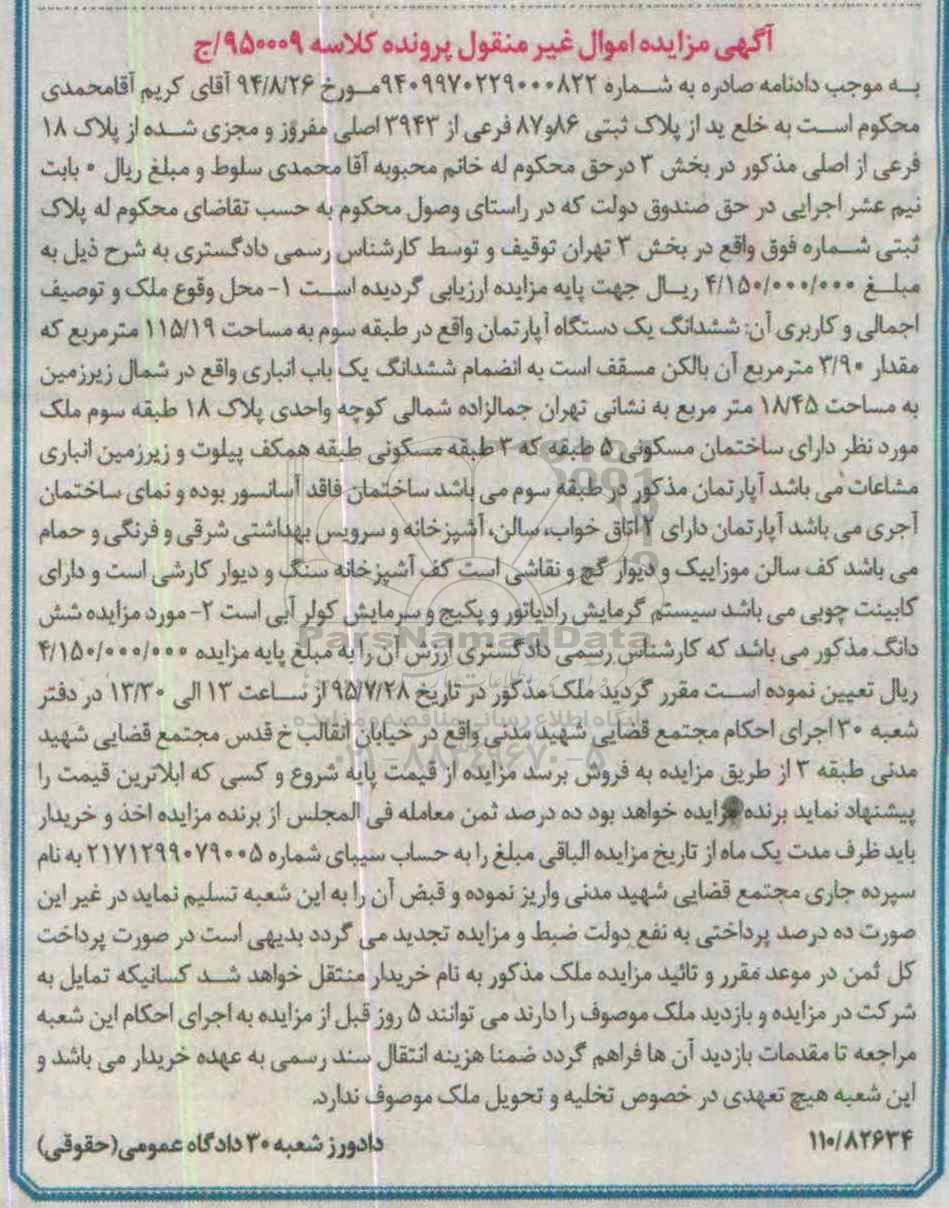 آگهی مزایده اموال غیر منقول پرونده کلاسه ۹۵۰۰۰۹/ج
به موجب دادنامه صادره به شماره ۹۴۰۹۹۷۰۲۲۹۰۰۰۸۲۲ مورخ ۹۴/۸/۲۶ آقای کریم آقامحمدی
محکوم است به خلع ید از پلاک ثبتی ۸۶و۸۷ فرعی از ۳۹۴۳ اصلی مفروز و مجزی شده از پلاک ۱۸
فرعی از اصلی مذکور در بخش ۳ درحق محکوم له خانم محبوبه آقا محمدی سلوط و مبلغ ریال ۰ بابت
نیم عشر اجرایی در حق صندوق دولت که در راستای وصول محکوم به حسب تقاضای محکوم له پلاک
ثبتی شماره فوق واقع در بخش ۳ تهران توقیف و توسط کارشناس رسمی دادگستری به شرح ذیل به
مبلغ ۴/۱۵۰/۰۰۰/۰۰۰ ریال جهت پایه مزایده ارزیابی گردیده است ۱- محل وقوع ملک و توصیف
اجمالی و کاربری آن: ششدانگ یک دستگاه آپارتمان واقع در طبقه سوم به مساحت ۱۱۵/۱۹ مترمربع که
مقدار ۳/۹۰ مترمربع آن بالکن مسقف است به انضمام ششدانگ یک باب انباری واقع در شمال زیرزمین
به مساحت ۱۸/۴۵ متر مربع به نشانی تهران جمالزاده شمالی کوچه واحدی پلاک ۱۸ طبقه سوم ملک
مورد نظر دارای ساختمان مسکونی ۵ طبقه که ۳ طبقه مسکونی طبقه همکف پیلوت و زیرزمین انباری
مشاعات می باشد آپارتمان مذکور در طبقه سوم می باشد ساختمان فاقد آسانسور بوده و نمای ساختمان
آجری می باشد آپارتمان دارای ۲ اتاق خواب، سالن، آشپزخانه و سرویس بهداشتی شرقی و فرنگی و حمام
می باشد کف سالن موزاییک و دیوار گچ و نقاشی است کف آشپزخانه سنگ و دیوار کارشی است و دارای
کابینت چوبی می باشد سیستم گرمایش رادیاتور و پکیج و سرمایش کولر آبی است ۲- مورد مزایده شش
دانگ مذکور می باشد که کارشناس رسمی دادگستری ارزش آن را به مبلغ پایه مزایده ۴/۱۵۰/۰۰۰/۰۰۰
ریال تعیین نموده است مقرر گردید ملک مذکور در تاریخ ۹۵/۷/۲۸ از ساعت ۱۳ الی ۱۳/۳۰ در دفتر
شعبه ۳۰ اجرای احکام مجتمع قضایی شهید مدنی واقع در خیابان انقالب خ قدس مجتمع قضایی شهید
مدنی طبقه ۳ از طریق مزایده به فروش برسد مزایده از قیمت پایه شروع و کسی که ابلاترین قیمت را
پیشنهاد نماید برنده مزایده خواهد بود ده درصد ثمن معامله فی المجلس از برنده مزایده اخذ و خریدار
باید ظرف مدت یک ماه از تاریخ مزایده الباقی مبلغ را به حساب سیبای شماره ۲۱۷۱۲۹۹۰۷۹۰۰۵ به نام
سپرده جاری مجتمع قضایی شهید مدنی واریز نموده و قبض آن را به این شعبه تسلیم نماید در غیر این
صورت ده درصد پرداختی به نفع دولت ضبط و مزایده تجدید می گردد بدیهی است در صورت پرداخت
کل ثمن در موعد مقرر و تائید مزایده ملک مذکور به نام خریدار منتقل خواهد شد کسانیکه تمایل به
شرکت در مزایده و بازدید ملک موصوف را دارند می توانند ۵ روز قبل از مزایده به اجرای احکام این شعبه
مراجعه تا مقدمات بازدید آن ها فراهم گردد ضمنا هزینه انتقال سند رسمی به عهده خریدار می باشد و
این شعبه هیچ تعهدی در خصوص تخلیه و تحویل ملک موصوف ندارد.
۱۱۰/۸۲۶۳۴ دادورز شعبه ۳۰ دادگاه عمومی(حقوقی)
ParsNamadData
پایگاه اطلاع رسانی مناقصه و مزایده